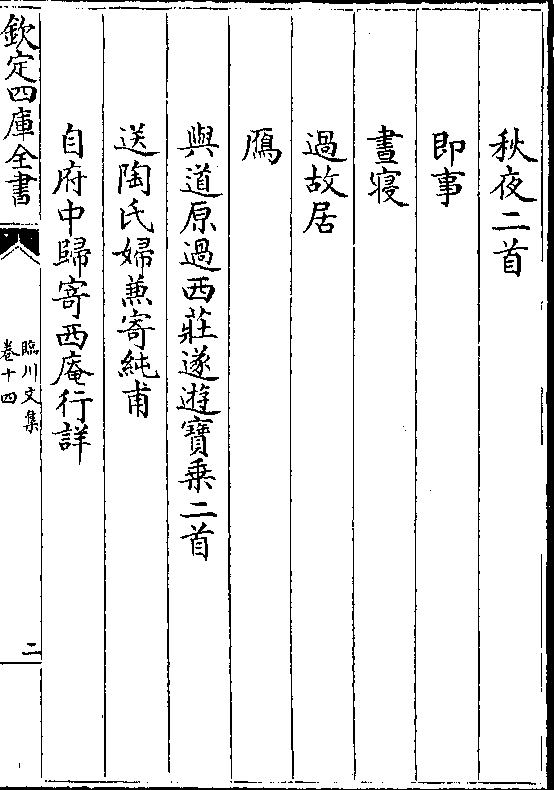 秋夜二首
即事
晝寢
過故居
鴈
與道原過西莊遂遊寶乗二首
送陶氏婦兼寄純甫
自府中歸寄西庵行詳
欽定四庫全書
臨川文集
卷十四
二